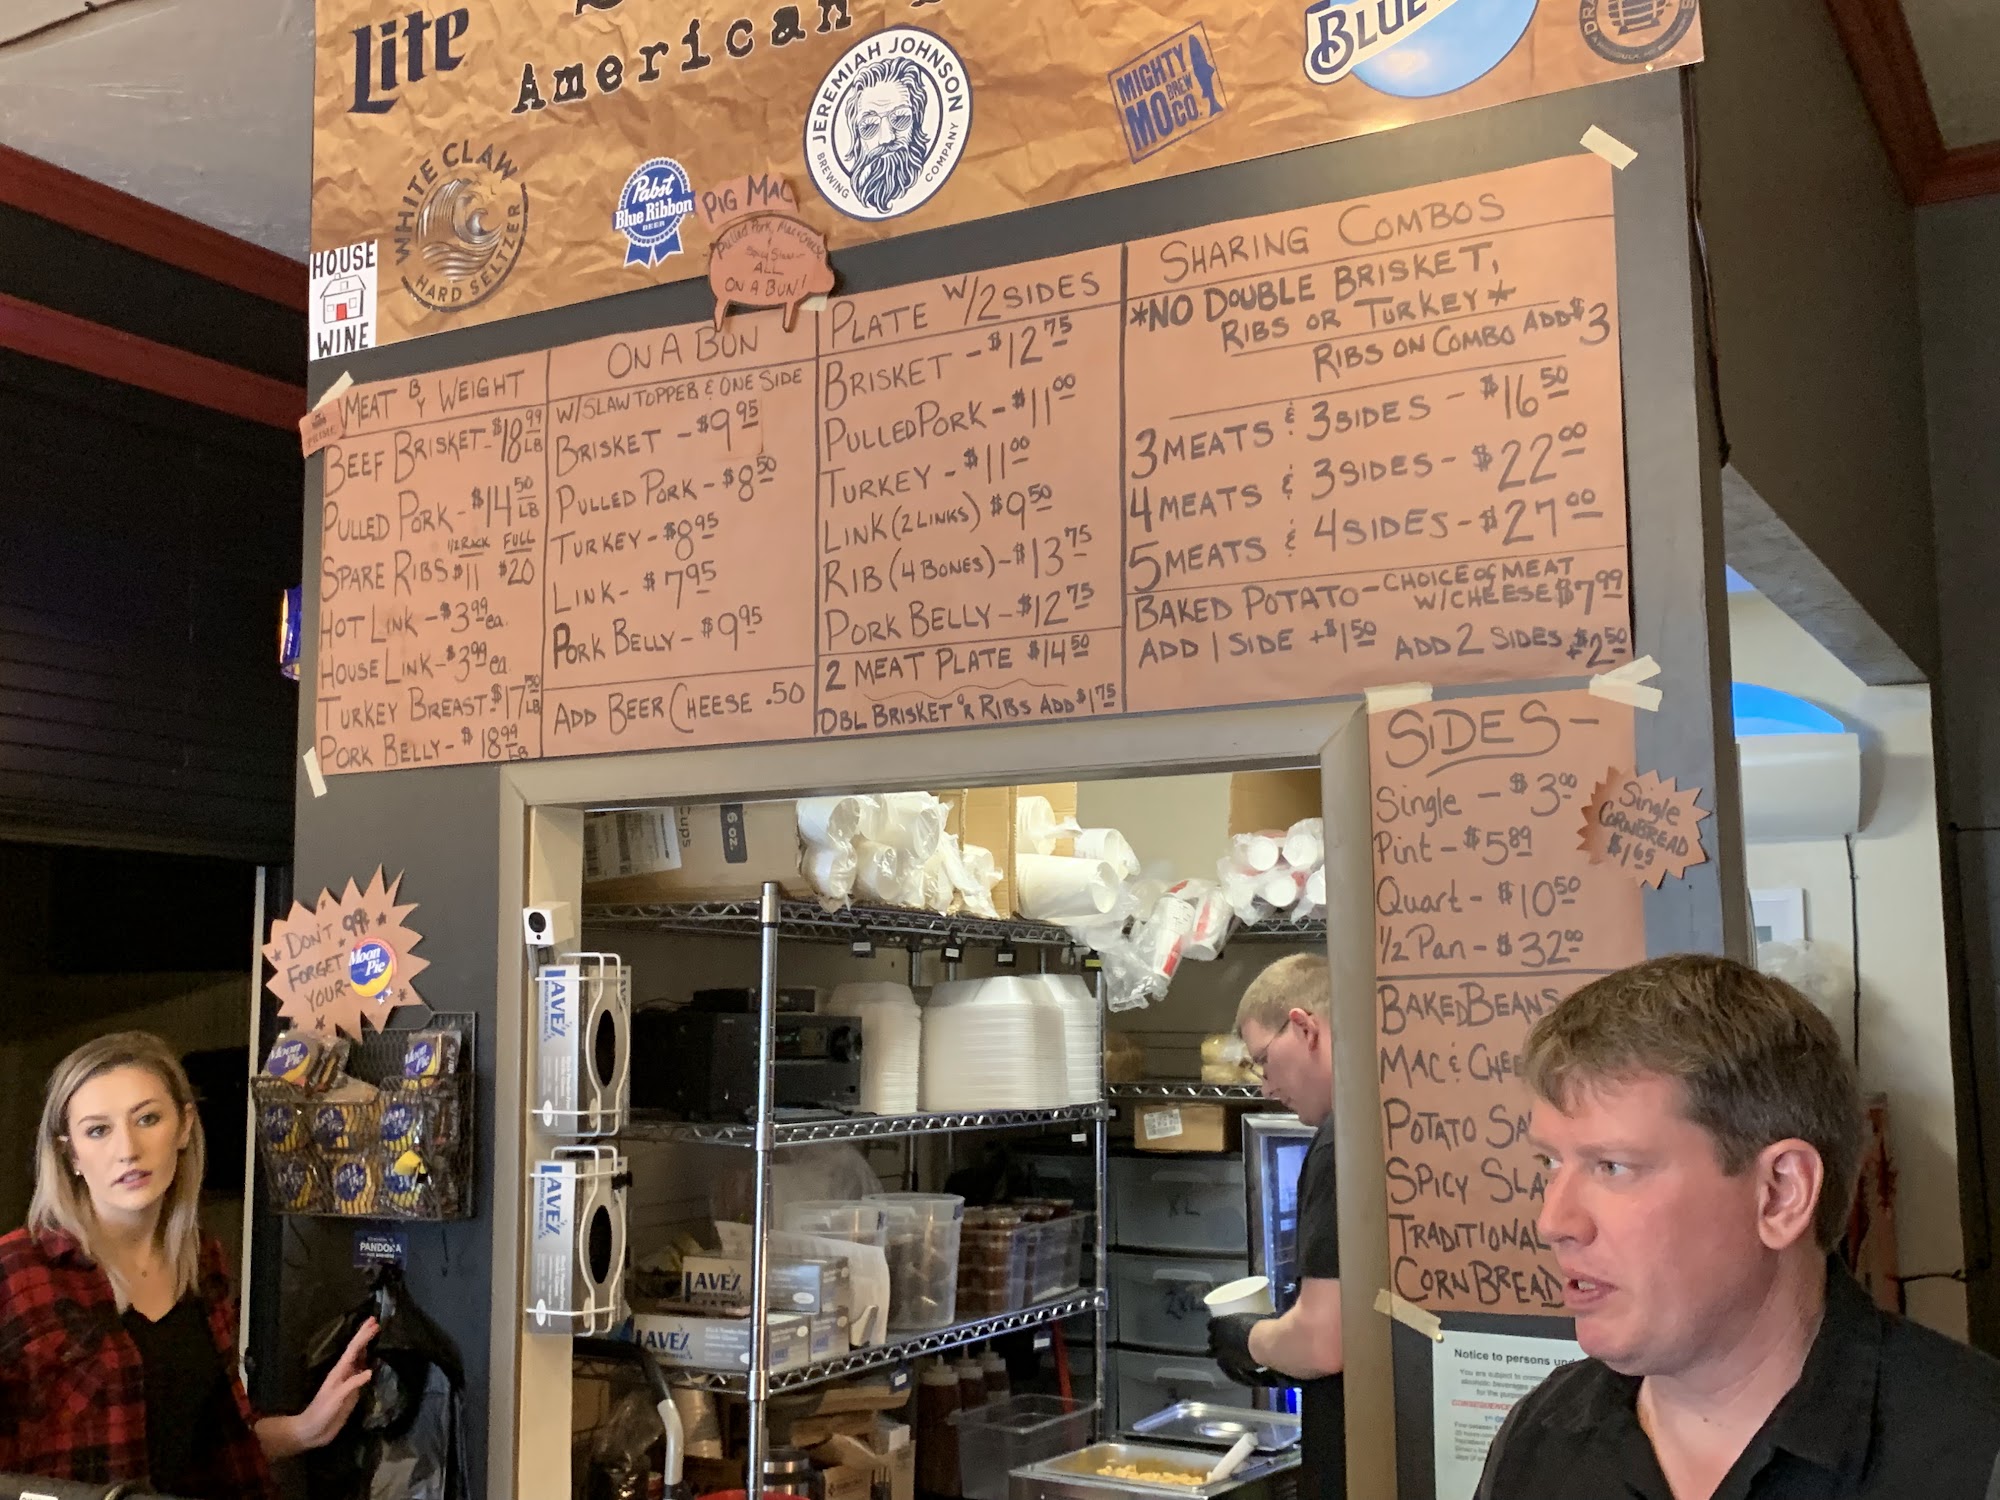 Lite
American
JEREMIAH JOHNSON
BREWING COMPANY
MIGHTY
MO BREW
CO.
BLUE
WHITE CLAW
HARD SELTZER
Pabst
Blue Ribbon
BEER
HOUSE
WINE
PIG MAC
Pulled Pork, Mac & Cheese
&
Spicy Slaw
ALL
ON A BUN!
MEAT BY WEIGHT
PRIME
BEEF BRISKET - $18.99 LB
PULLED PORK - $14.50 LB
1/2 RACK FULL
SPARE RIBS $11 $20
HOT LINK - $3.99 ea.
HOUSE LINK - $3.99 ea.
TURKEY BREAST - $17.50 LB
PORK BELLY - $18.99 LB
ON A BUN
W/SLAW TOPPED & ONE SIDE
BRISKET - $9.95
PULLED PORK - $8.50
TURKEY - $8.95
LINK - $7.95
PORK BELLY - $9.95
ADD BEER CHEESE .50
PLATE W/2 SIDES
BRISKET - $12.75
PULLED PORK - $11.00
TURKEY - $11.00
LINK (2 LINKS) $9.50
RIB (4 BONES) - $13.75
PORK BELLY - $12.75
2 MEAT PLATE $14.50
DBL BRISKET OR RIBS ADD $1.75
SHARING COMBOS
*NO DOUBLE BRISKET,
RIBS OR TURKEY*
RIBS ON COMBO ADD $3
3 MEATS & 3 SIDES - $16.50
4 MEATS & 3 SIDES - $22.00
5 MEATS & 4 SIDES - $27.00
BAKED POTATO - CHOICE OF MEAT
W/CHEESE $7.99
ADD 1 SIDE +$1.50 ADD 2 SIDES +$2.50
SIDES -
Single - $3.00
Pint - $5.89
Quart - $10.50
1/2 Pan - $32.00
Single
CORNBREAD
$1.65
BAKED BEANS
MAC & CHEE
POTATO SA
SPICY SLA
TRADITIONAL
CORNBREAD
DON'T 99¢
FORGET
YOUR -
Moon
Pie
Moon Pie
Moon
6 oz.
Cups
LAVEX
LAVEX
LAVEX
LAVEX
PANDORA
XL
2XL
Notice to persons und
You are subject to
alcoholic beverages
for the purpose
CONSEQUENCES